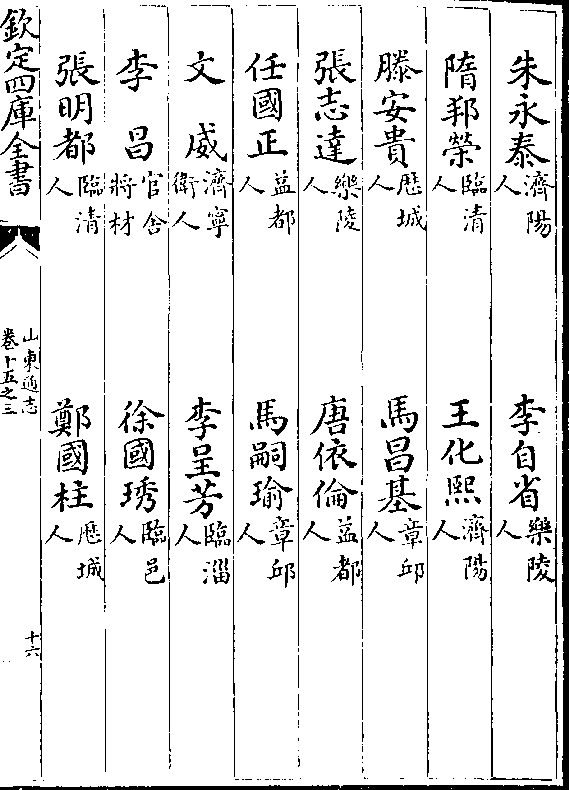 朱永泰濟陽人 李自省樂陵人
隋邦榮臨清人 王化熙濟陽人
滕安貴歷城人 馬昌基章邱人
張志達樂陵人 唐依倫益都人
任國正益都人 馬嗣瑜章邱人
文威濟寧衛人 李呈芳臨淄人
李昌官舍將材 徐國琇臨邑人
張明都臨清人 鄭國柱歷城人
欽定四庫全書
山東通志
卷十五之三
十六